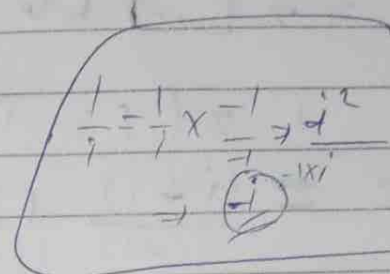 1/i = 1/i × -1/-1 ⇒ i²/-1×i
⇒ -i